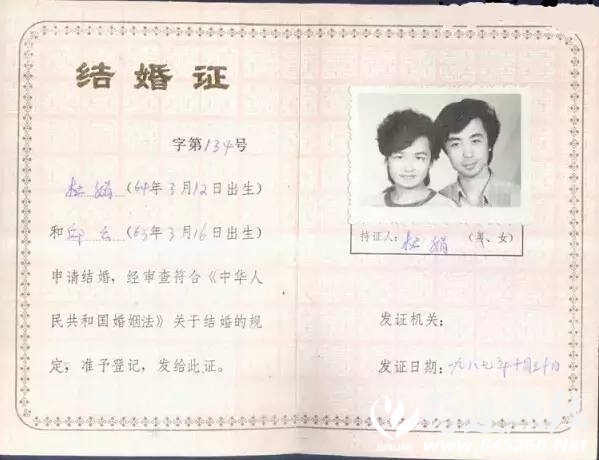 结婚证
字第134号
杜娟(64年3月12日出生)
和邱云(65年3月16日出生)
申请结婚,经审查符合《中华人
民共和国婚姻法》关于结婚的规
定,准予登记,发给此证。
持证人:杜娟(男、女)
发证机关:
发证日期:一九八七年十月三十日
JUNLUAN
www.645250.Net